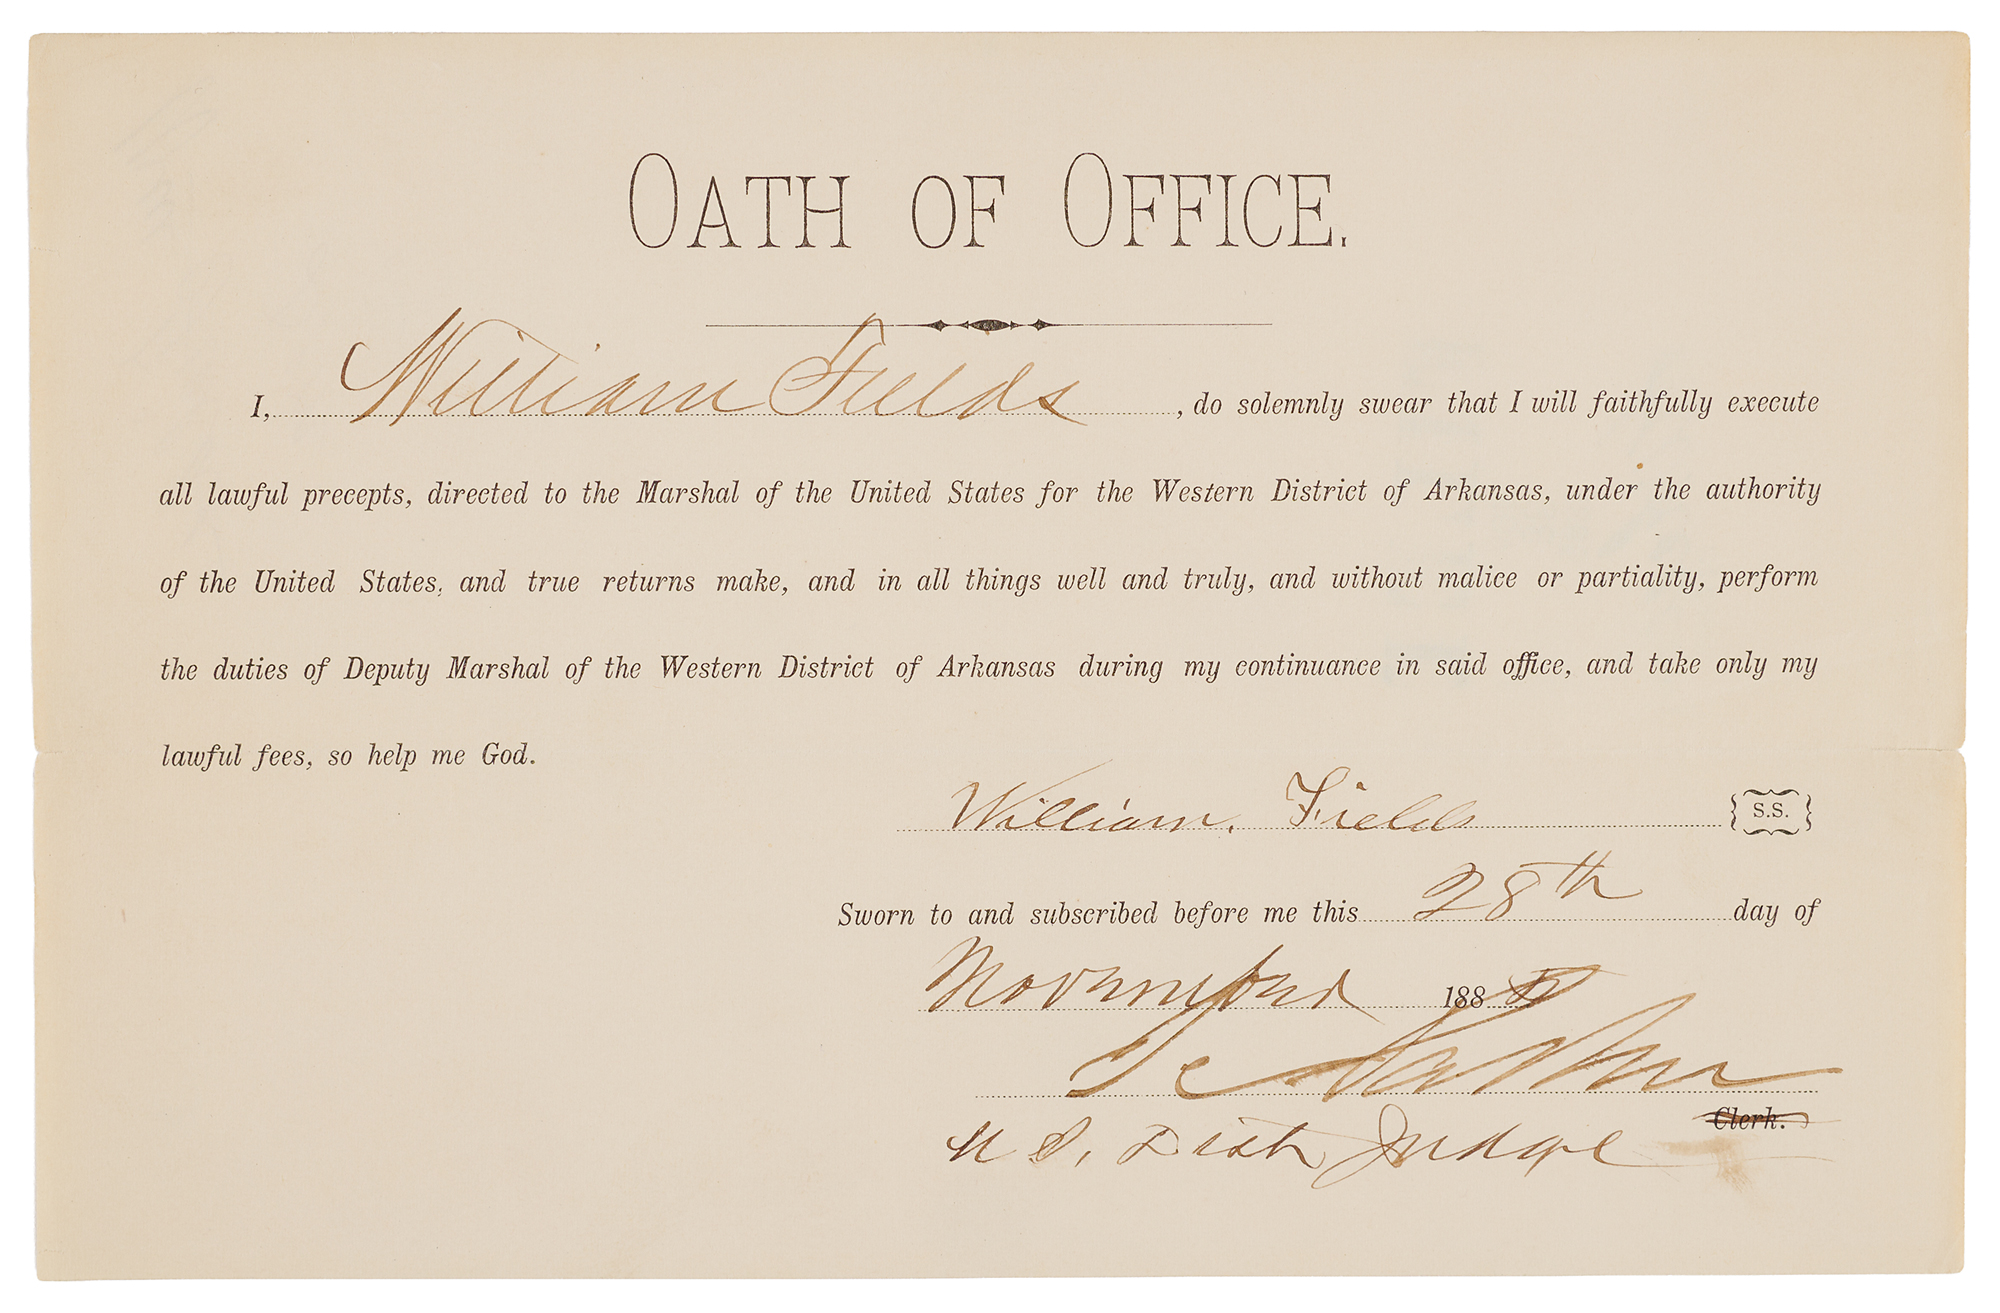 OATH OF OFFICE.
I, William Fields, do solemnly swear that I will faithfully execute
all lawful precepts, directed to the Marshal of the United States for the Western District of Arkansas, under the authority
of the United States, and true returns make, and in all things well and truly, and without malice or partiality, perform
the duties of Deputy Marshal of the Western District of Arkansas during my continuance in said office, and take only my
lawful fees, so help me God.
William. Fields {S.S.}
Sworn to and subscribed before me this 28th day of
November 188
I C Parker
Clerk.
U S. Dist Judge